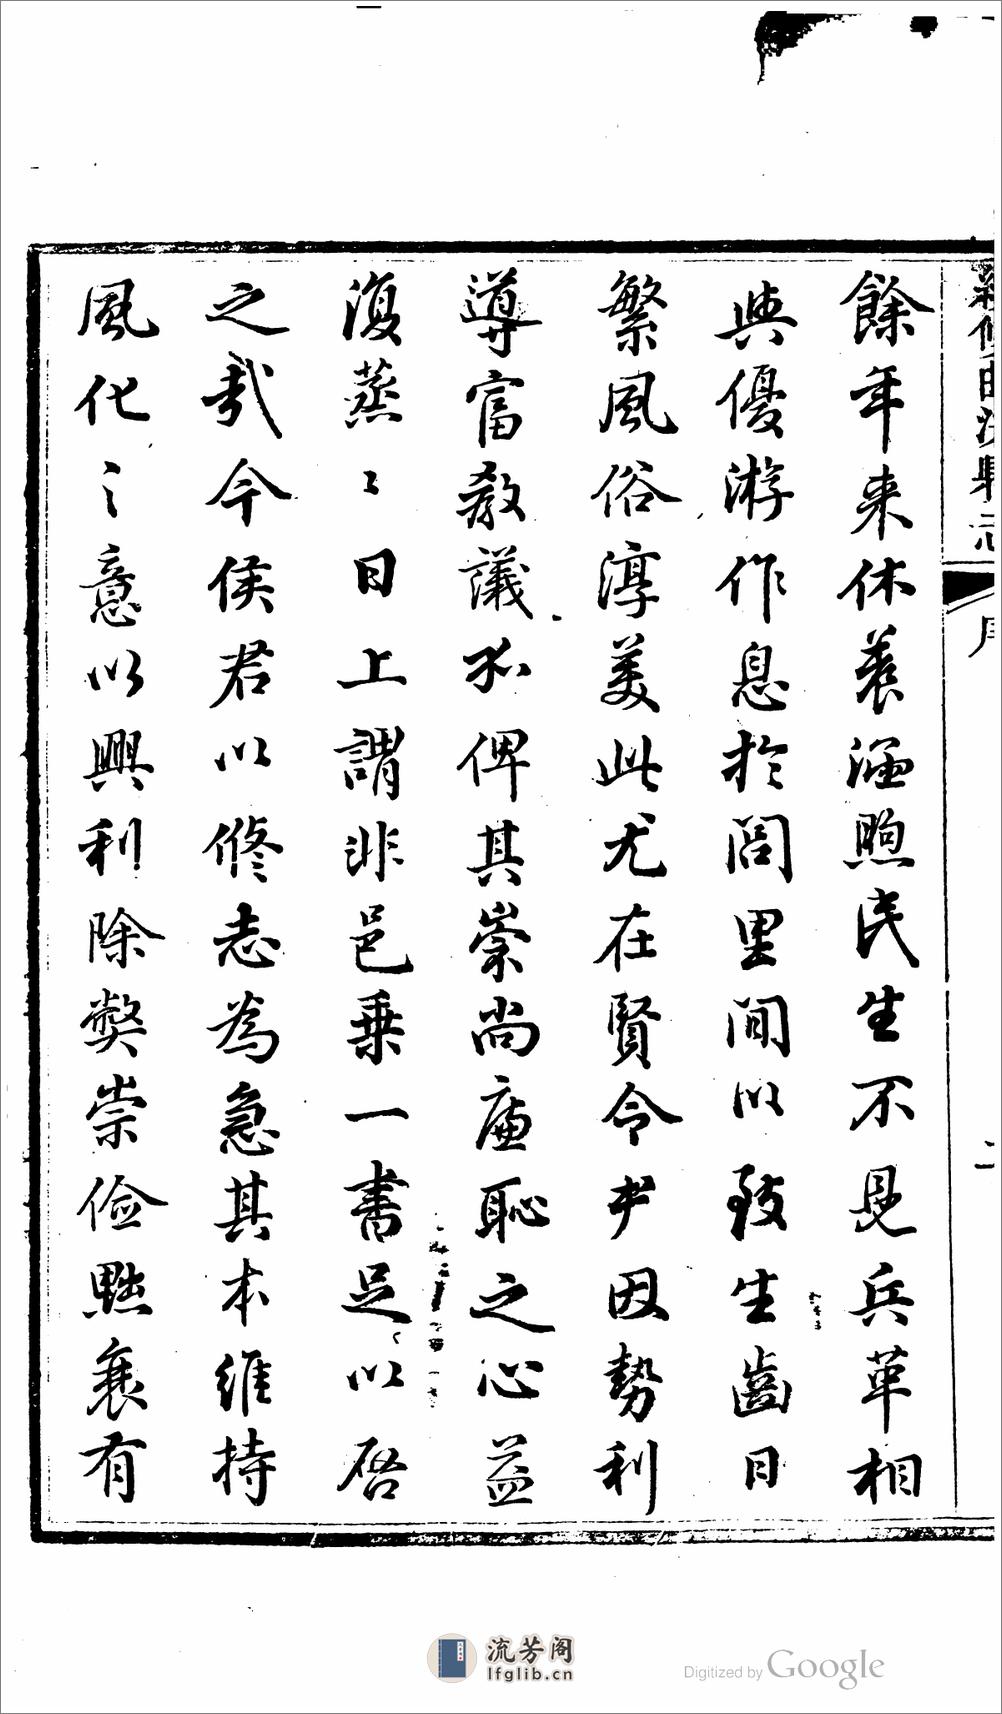 餘年来休養涵煦民生不見兵革相
與優游作息於閭里間以致生齒日
繁風俗淳美此尤在賢令尹因勢利
導富教議水俾其崇尚廉恥之心益
復蒸〻日上謂非邑乗一書足以啓
之哉今侯君以修志為急其本維持
風化之意以興利除弊崇儉黜奢有
序
二
流芳阁
lfglib.cn
Digitized by Google